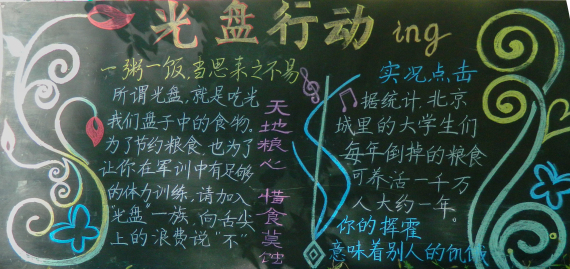 光盘行动 ing
一粥一饭,当思来之不易
所谓光盘,就是吃光
我们盘子中的食物。
为了节约粮食,也为了
让你在军训中有足够
的体力训练,请加入
“光盘”一族,向舌尖
上的浪费说“不”
天地粮心 惜食莫蚀
实况点击
据统计,北京
城里的大学生们
每年倒掉的粮食
可养活一千万
人大约一年。
你的挥霍
意味着别人的饥饿